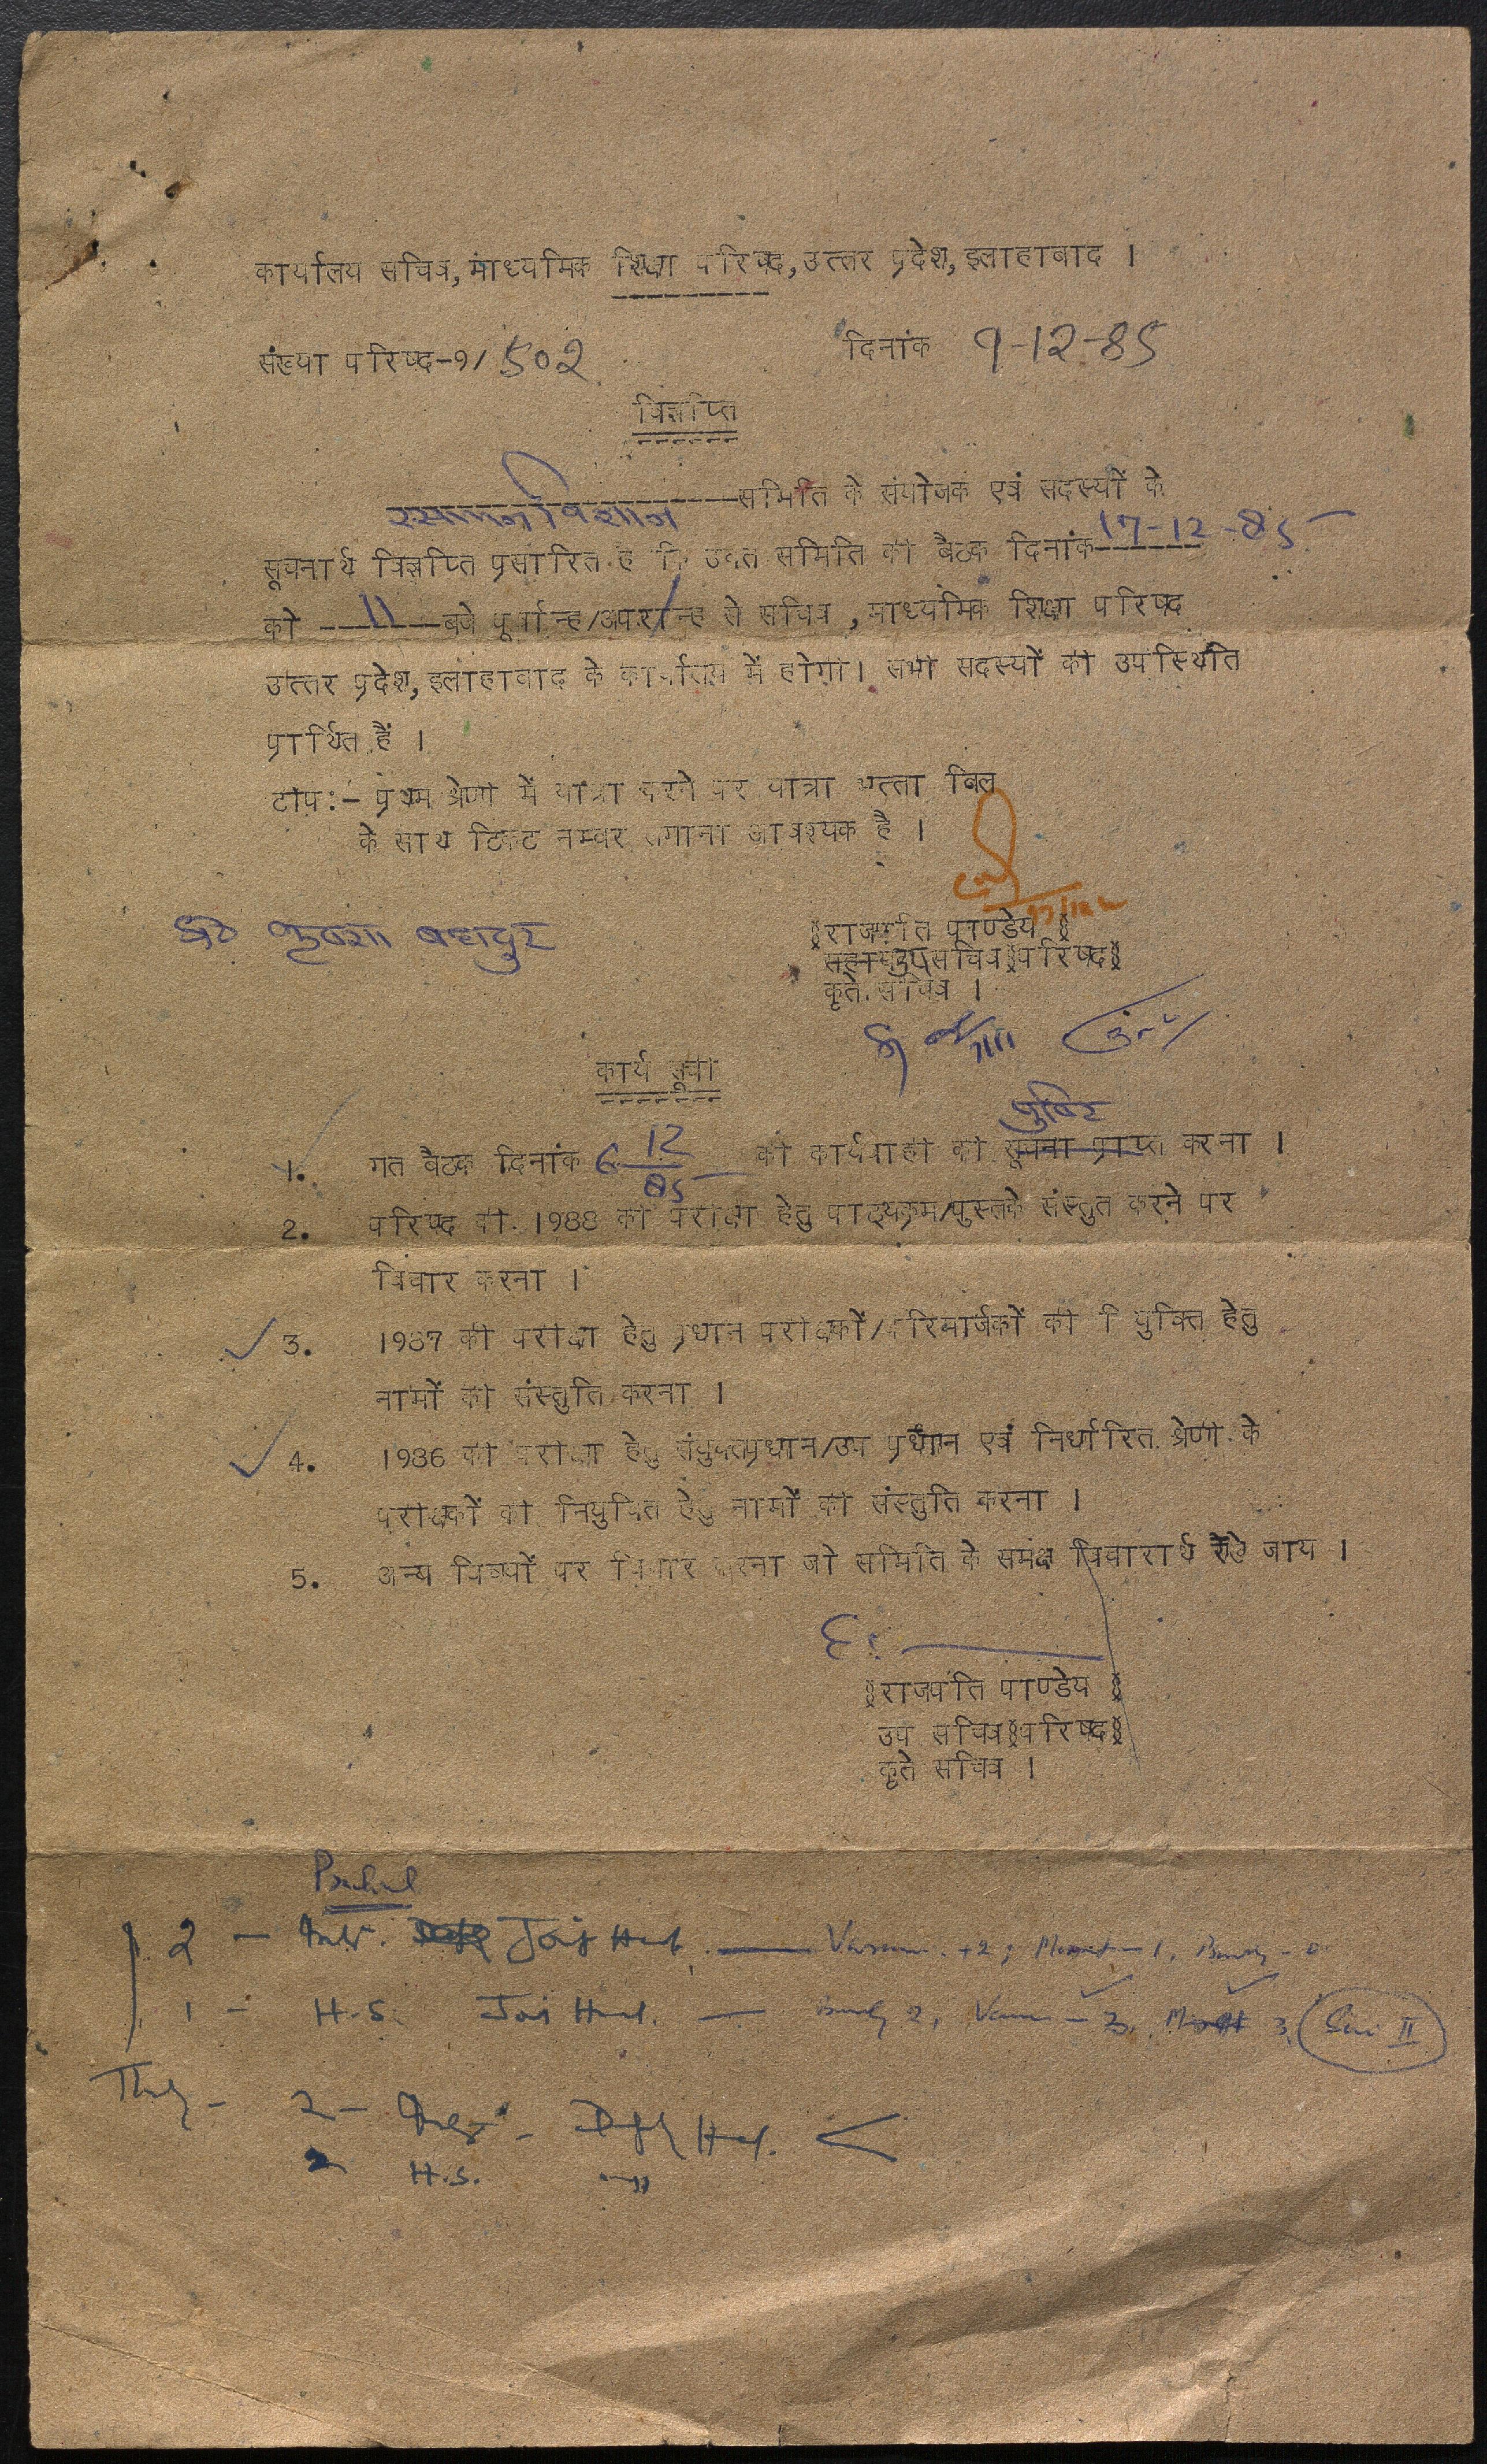 कार्यालय सचिव, माध्यमिक शिक्षा परिषद, उत्तर प्रदेश, इलाहाबाद ।
संख्या परिषद-9/ 502 दिनांक 9-12-85
विज्ञप्ति
विज्ञान समिति के संयोजक एवं सदस्यों के
सूचनार्थ विज्ञप्ति प्रसारित है कि उक्त समिति की बैठक दिनांक 17-12-85
को 11 बजे पूर्वान्ह/अपरान्ह से सचिव, माध्यमिक शिक्षा परिषद
उत्तर प्रदेश, इलाहाबाद के कार्यालय में होगी। सभी सदस्यों की उपस्थिति
प्रार्थित है ।
टीप:- प्रथम श्रेणी में यात्रा करने पर यात्रा भत्ता बिल
के साथ टिकट नम्बर लगाना आवश्यक है ।
कृष्णा बहादुर
(राजपति पाण्डेय)
उपसचिव (परिषद)
कृते सचिव ।
कार्य सूची
पुष्टि
1. गत बैठक दिनांक 6 12/85 की कार्यवाही की सूचना प्राप्त करना ।
2. परिषद की 1988 की परीक्षा हेतु पाठ्यक्रम/पुस्तकें संस्तुत करने पर
विचार करना ।
3. 1987 की परीक्षा हेतु प्रधान परीक्षकों/परिमार्जकों की नियुक्ति हेतु
नामों की संस्तुति करना ।
4. 1986 की परीक्षा हेतु संयुक्तप्रधान/उप प्रधान एवं निर्धारित श्रेणी के
परीक्षकों की नियुक्ति हेतु नामों की संस्तुति करना ।
5. अन्य विषयों पर विचार करना जो समिति के समक्ष विचारार्थ रखे जाय ।
(राजपति पाण्डेय)
उप सचिव (परिषद)
कृते सचिव ।
2 -
1 - H.S.
II
2 -
2 H.S. "